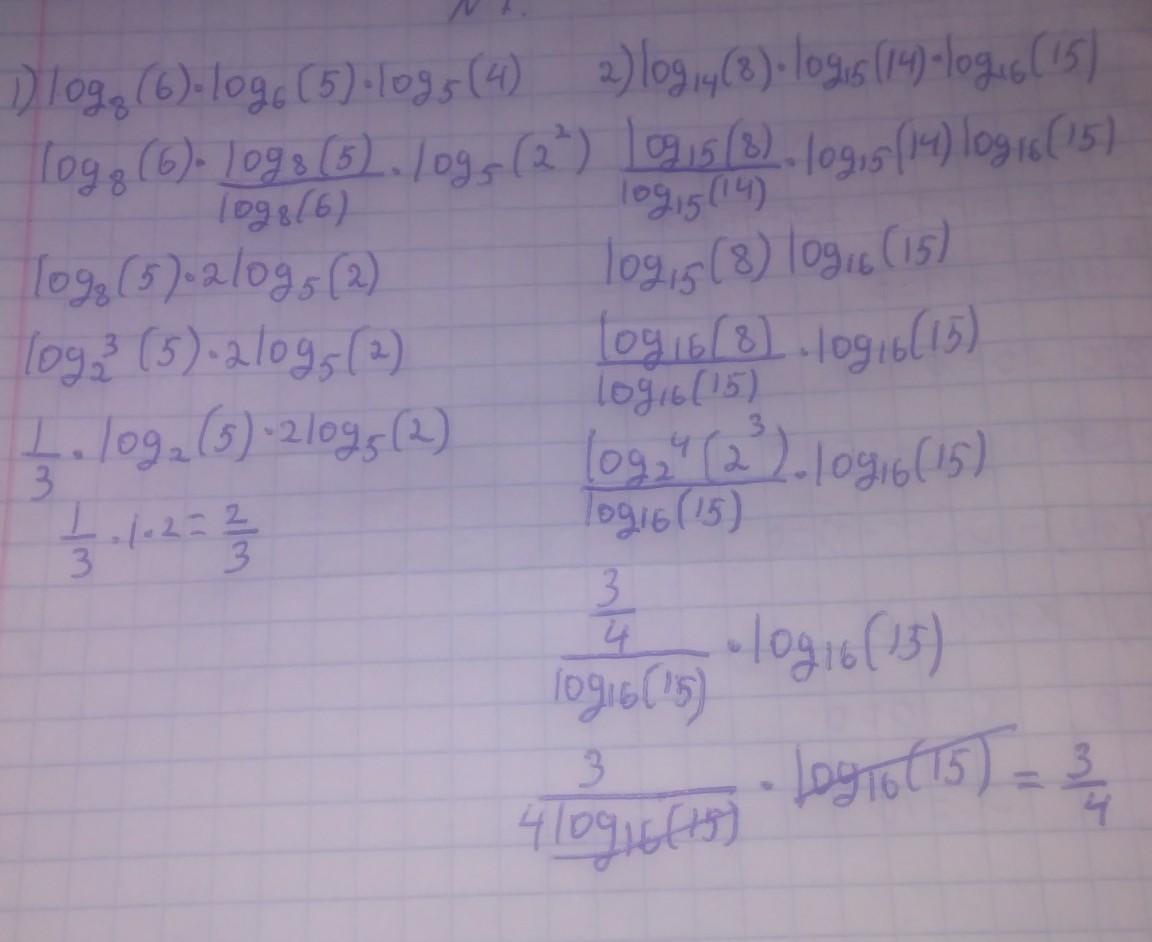 1) log₈(6)·log₆(5)·log₅(4)
log₈(6)· log₈(5)/log₈(6) · log₅(2²)
log₈(5)·2log₅(2)
log₂³(5)·2log₅(2)
1/3 · log₂(5)·2log₅(2)
1/3 ·1·2= 2/3
2) log₁₄(8)·log₁₅(14)·log₁₆(15)
log₁₅(8)/log₁₅(14) · log₁₅(14) log₁₆(15)
log₁₅(8) log₁₆(15)
log₁₆(8)/log₁₆(15) · log₁₆(15)
log₂⁴(2³)/log₁₆(15) · log₁₆(15)
3/4/log₁₆(15) · log₁₆(15)
3/4log₁₆(15) · log₁₆(15) = 3/4